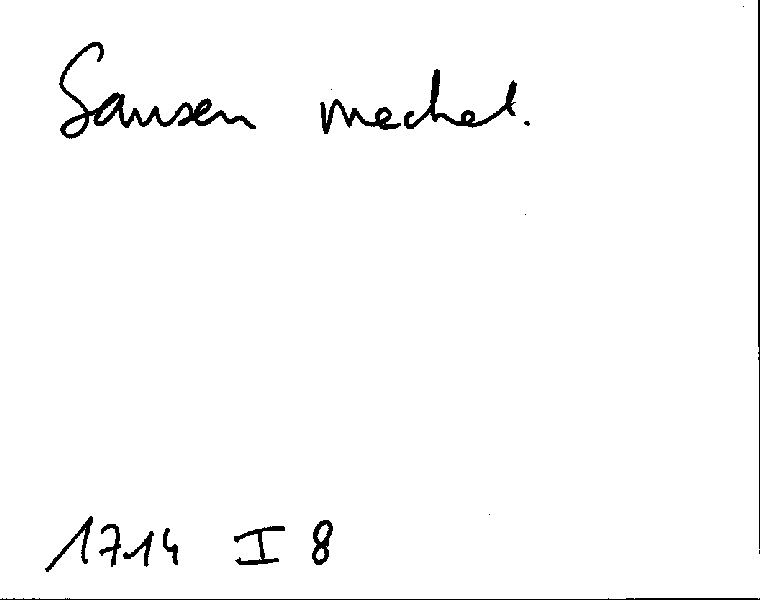 Sausen mechel.
1714 I 8